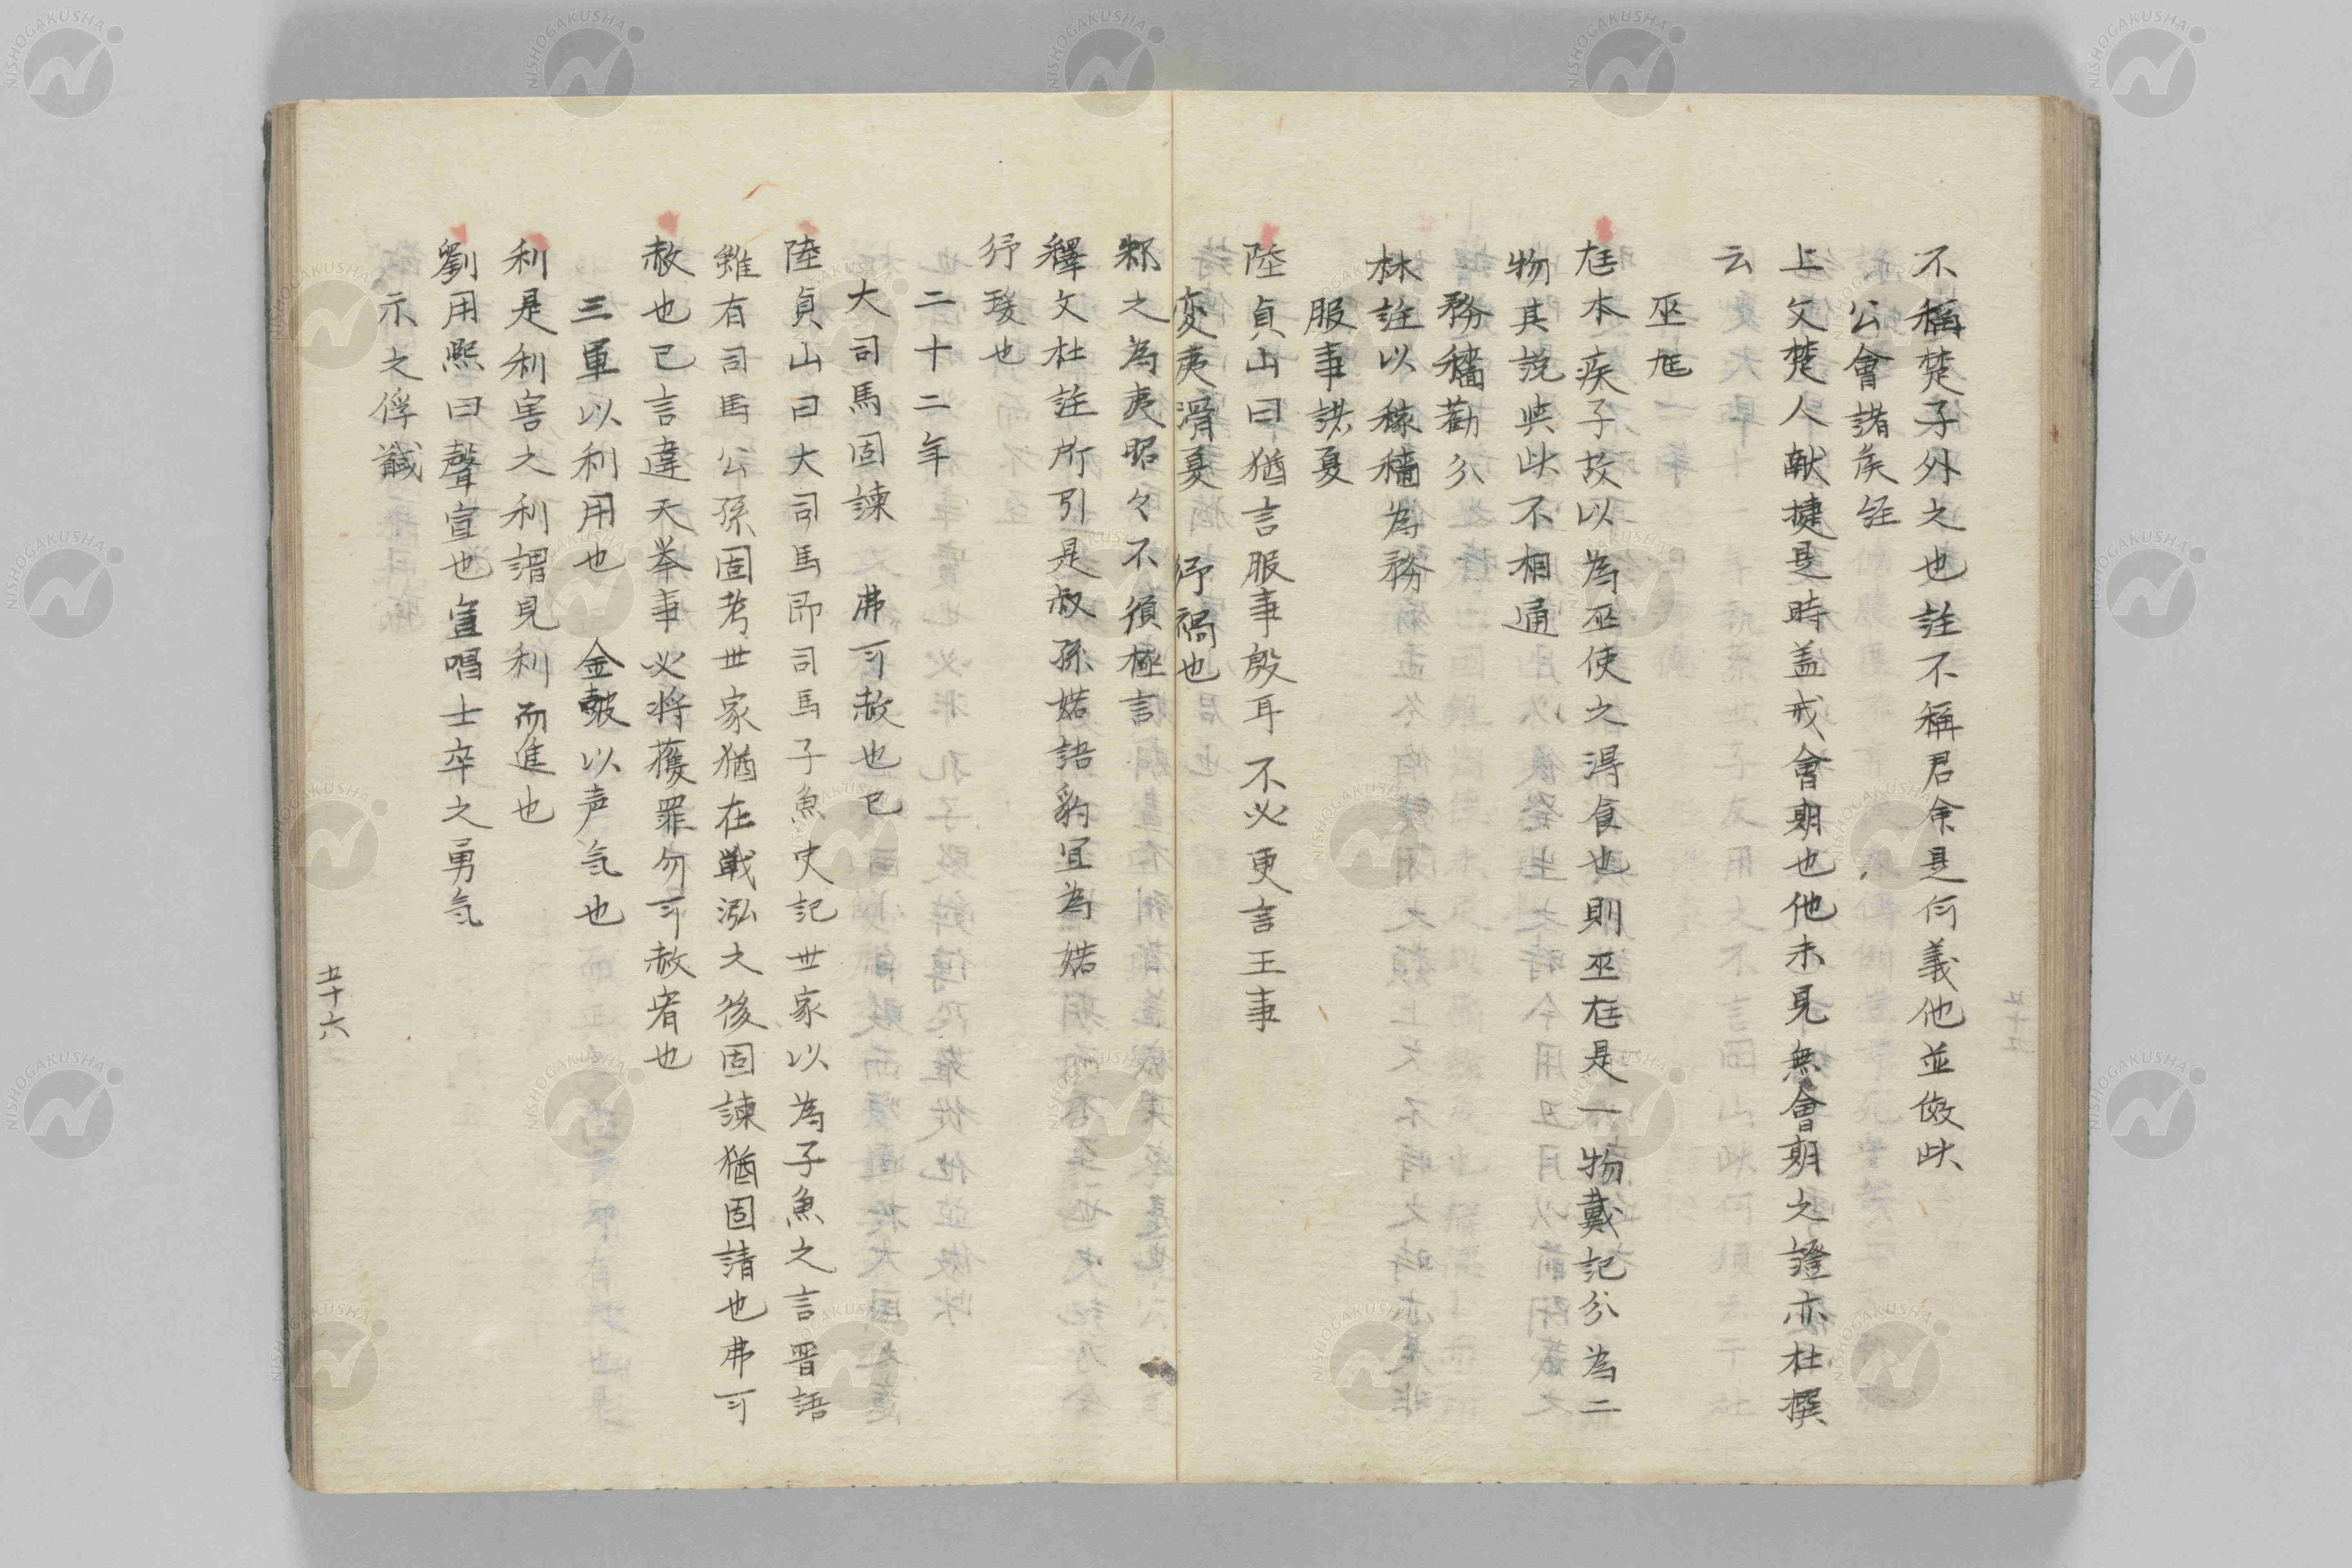 不稱楚子外之也註不稱君命是何義他並倣此
公會諸侯註
上文楚人献捷是時盖戒會期也他未見無會期之證亦杜撰
云
巫尪
尪本疾子故以為巫使之得食也則巫尪是一物戴記分為二
物其説與此不相通
務穡勸分
林註以稼穡為務
服事諸夏
陸貞山曰猶言服事殷耳不必更言王事
変夷滑夏 紓禍也
邾之為夷昭々不須極言
釋文杜註所引是叔孫婼語豹宜為婼
紓 也
二十二年
大司馬固諫 弗可赦也已
陸貞山曰大司馬即司馬子魚史記世家以為子魚之言晋語
雖有司馬公孫固考世家猶在戦泓之後固諫猶固請也弗可
赦也已言違天挙事必將獲罪勿可赦宥也
三軍以利用也 金皷以声気也
利是利害之利謂見利而進也
劉用熙曰聲宣也宣唱士卒之勇気
示之俘馘
五十六
NISHOGAKUSHA